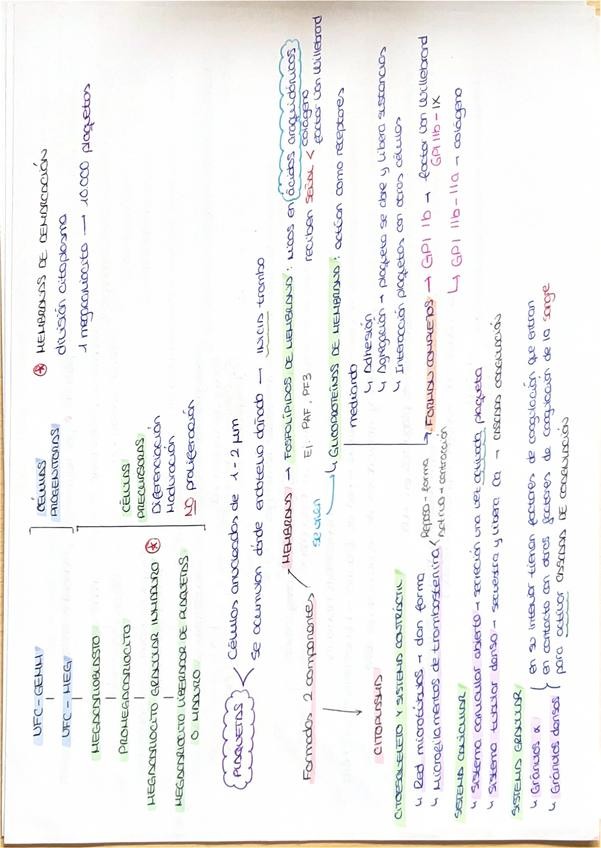 UFC-GEMM
UFC-MEG
CÉLULAS
PROGENITORAS
MEGACARIOBLASTO
PROMEGACARIOCITO
MEGACARIOCITO GRANULAR INMADURO *
MEGACARIOCITO LIBERADOR DE PLAQUETAS
O MADURO
CÉLULAS
PRECURSORAS
Diferenciación
Maduración
NO proliferación
* MEMBRANAS DE DEMARCACIÓN
división citoplasma
1 megacariocito → 10.000 plaquetas
PLAQUETAS
Células anucleadas de 1-2 μm
se acumulan dónde endotelio dañado → INICIA trombo
Formadas 2 componentes
MEMBRANA → FOSFOLÍPIDOS DE MEMBRANA: RICOS en ácidos araquidónicos
Ej: PAF, PF3
reciben SEÑAL < colágeno
factor Von Willebrand
se unen
↳ GLICOPROTEÍNAS DE MEMBRANA: actúan como receptores
mediando
↳ Adhesión
↳ Agregación → plaqueta se abre y libera sustancias
↳ Interacción plaquetas con otras células
↳ FORMAN COMPLEJOS → GPI Ib → factor Von Willebrand
GPI Ib-IX
↳ GPI IIb-IIa → colágeno
CITOPLASMA
CITOESQUELETO Y SISTEMA CONTRÁCTIL
↳ Red microtúbulos → dan forma
↳ Microfilamentos de trombostenina
Reposo → forma
Activo → contracción
SISTEMA CANICULAR
↳ Sistema canicular abierto → secreción una vez activada plaqueta
↳ Sistema tubular denso → secuestra y libera Ca → CASCADA COAGULACIÓN
SISTEMA GRANULAR
↳ Gránulos α
↳ Gránulos densos
en su interior tienen factores de coagulación que entran
en contacto con otros factores de coagulación de la sangre
para activar CASCADA DE COAGULACIÓN